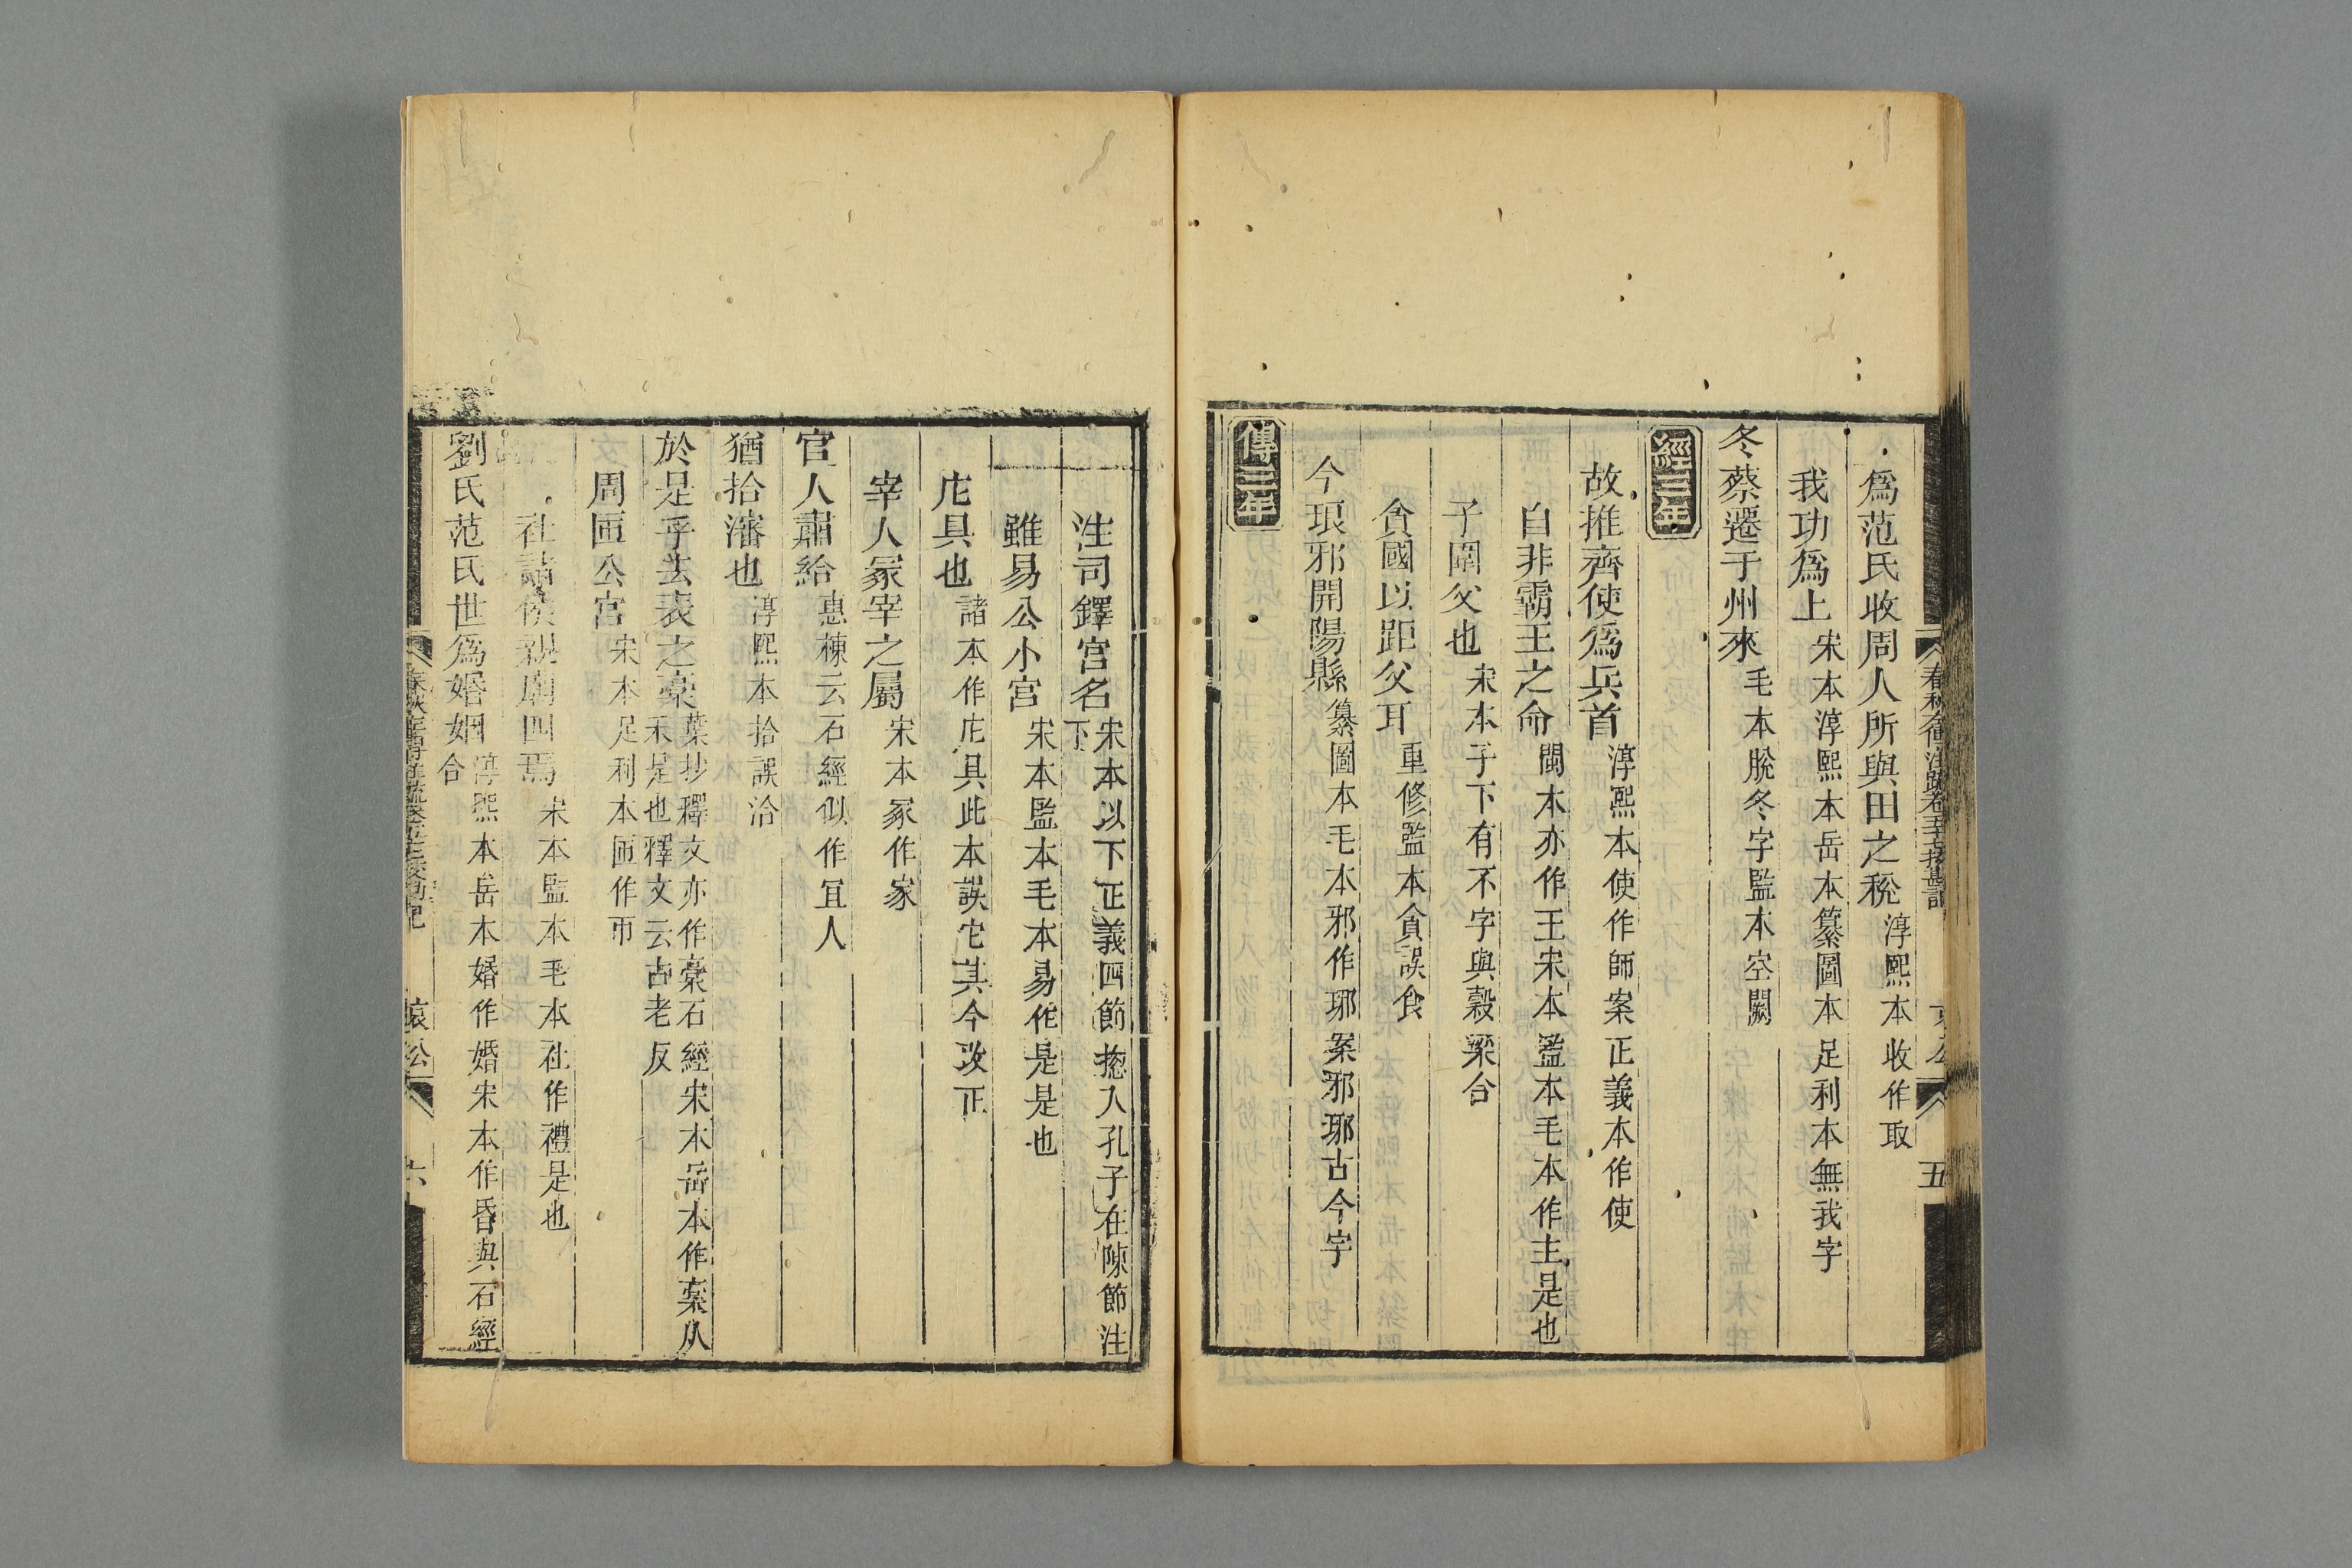 春秋左傳注疏卷五十七挍勘記
五
爲范氏收周人所與田之稅淳熙本收作取
我功爲上宋本淳熙本岳本纂圖本足利本無我字
冬蔡遷于州來毛本脫冬字監本空闕
經三年
故推齊使爲兵首淳熙本使作師案正義本作使
自非霸王之命閩本亦作王宋本監本毛本作主是也
子圍父也宋本子下有不字與穀梁合
貪國以距父耳重修監本貪誤食
今琅邪開陽縣纂圖本毛本邪作琊案邪琊古今字
傳三年
注司鐸宫名宋本以下正義四節揔入孔子在陳節注下
雖易公小宫宋本監本毛本易作是是也
庀具也諸本作庀具此本誤它其今改正
宰人冢宰之屬宋本冢作家
官人肅給惠棟云石經似作宜人
猶拾瀋也淳熙本拾誤洽
於是乎去表之稾葉抄釋文亦作稾石經宋本岳本作槀从禾是也釋文云古老反
周匝公宫宋本足利本匝作帀
社諸侯親廟四焉宋本監本毛本社作禮是也
劉氏范氏世爲婚姻淳熙本岳本婚作婚宋本作昏與石經合
哀公
六